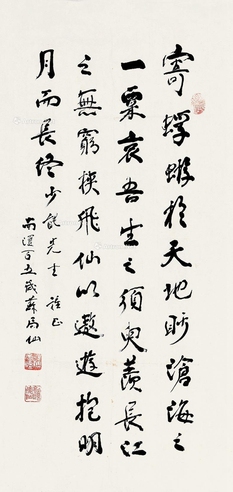 寄蜉蝣於天地眇滄海之
一粟哀吾生之須臾羨長江
之無窮挾飛仙以遨遊抱明
月而長終 少 先生 正
南滙百五歲蘇局仙